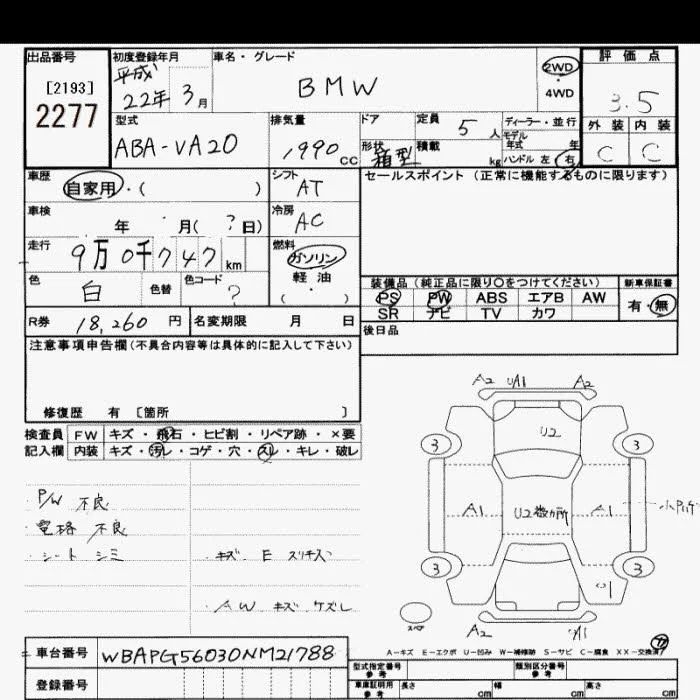 出品番号 初度登録年月 車名・グレード 評価点
[2193] 平成 BMW 2WD
2277 22年 3月 4WD 3.5
型式 排気量 ドア 定員 ディーラー・並行 外装 内装
ABA-VA20 1990cc 5人 モデル
年式 年
形状 箱型 積載 kg ハンドル 左 右 C C
車歴 自家用・( ) シフト AT セールスポイント(正常に機能するものに限ります)
車検 年 月(?日) 冷房 AC
走行 9万0千747km 燃料 ガソリン
軽油
( ・ )
色 白 色替 色コード ? 装備品(純正品に限り○をつけてください) 新車保証書
PS PW ABS エアB AW 有・無
SR ナビ TV カワ
R券 18,260円 名変期限 月 日 後日品
注意事項申告欄(不具合内容等は具体的に記入して下さい)
修復歴 有 〔箇所 〕
検査員 FW キズ・飛石・ヒビ割・リペア跡・×要
記入欄 内装 キズ・汚レ・コゲ・穴・スレ・キレ・破レ
P/W 不良
電格 不良
シート シミ キズ E スリキズ
AW キズ ケズレ
A2 U1 A1 A2
U2
3 3
A1 U2数カ所 A1
3 3
U1
スペア A2 U1 A1
A-キズ E-エクボ U-凹み W-補修跡 S-サビ C-腐食 XX-交換済
車台番号 WBAPG56030NM21788
登録番号
型式指定番号 参考 類別区分番号 参考
車庫証明用 参考 長さ cm 幅 cm 高さ cm